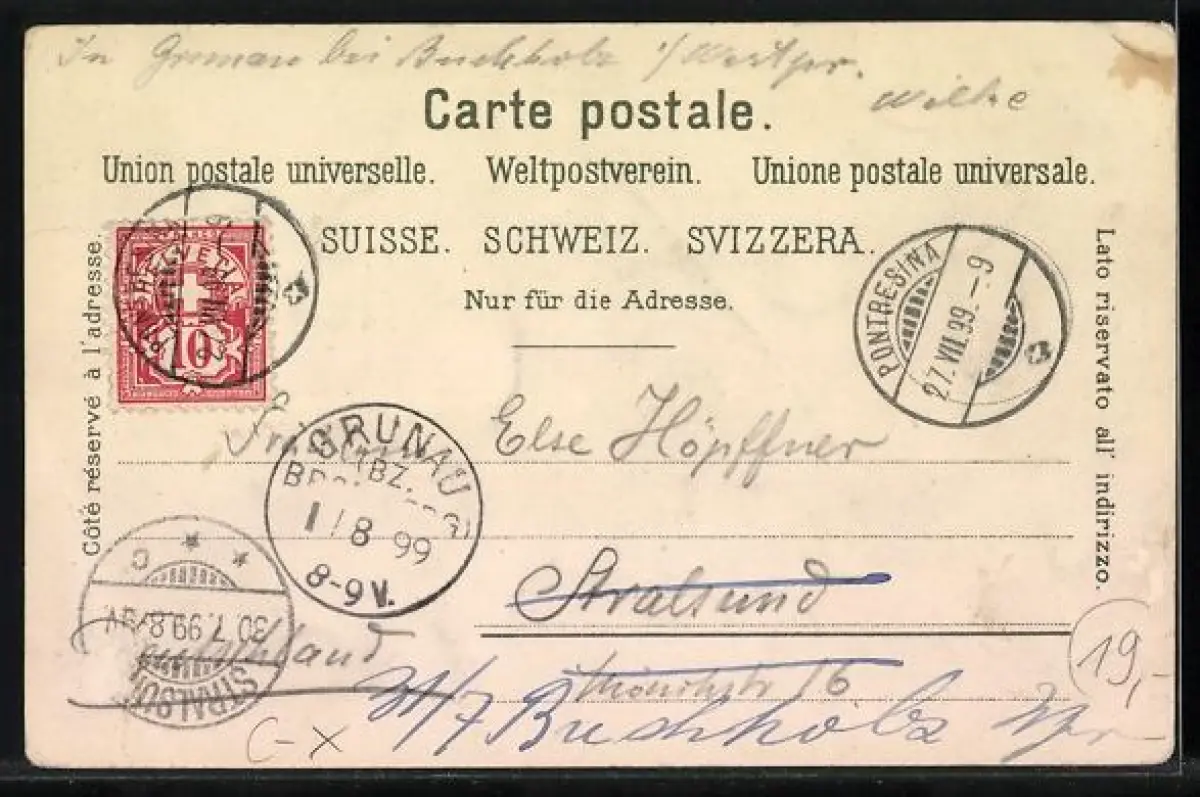 In Grunau bei Buchholz i/Westpr.
Wilke
Carte postale.
Union postale universelle. Weltpostverein. Unione postale universale.
SUISSE. SCHWEIZ. SVIZZERA.
Nur für die Adresse.
Côté réservé à l'adresse.
Lato riservato all' indirizzo.
HELVETIA
10
PONTRESINA
27.VII.99.-9
Else Höpffner
GRUNAU
BZ.
1/8 99
8-9V.
Stralsund
C
30.7.99.8-9V
STRALSUND
Deutschland
Mönchstr 16
31/7 Buchholz Wpr
19,-
C-X